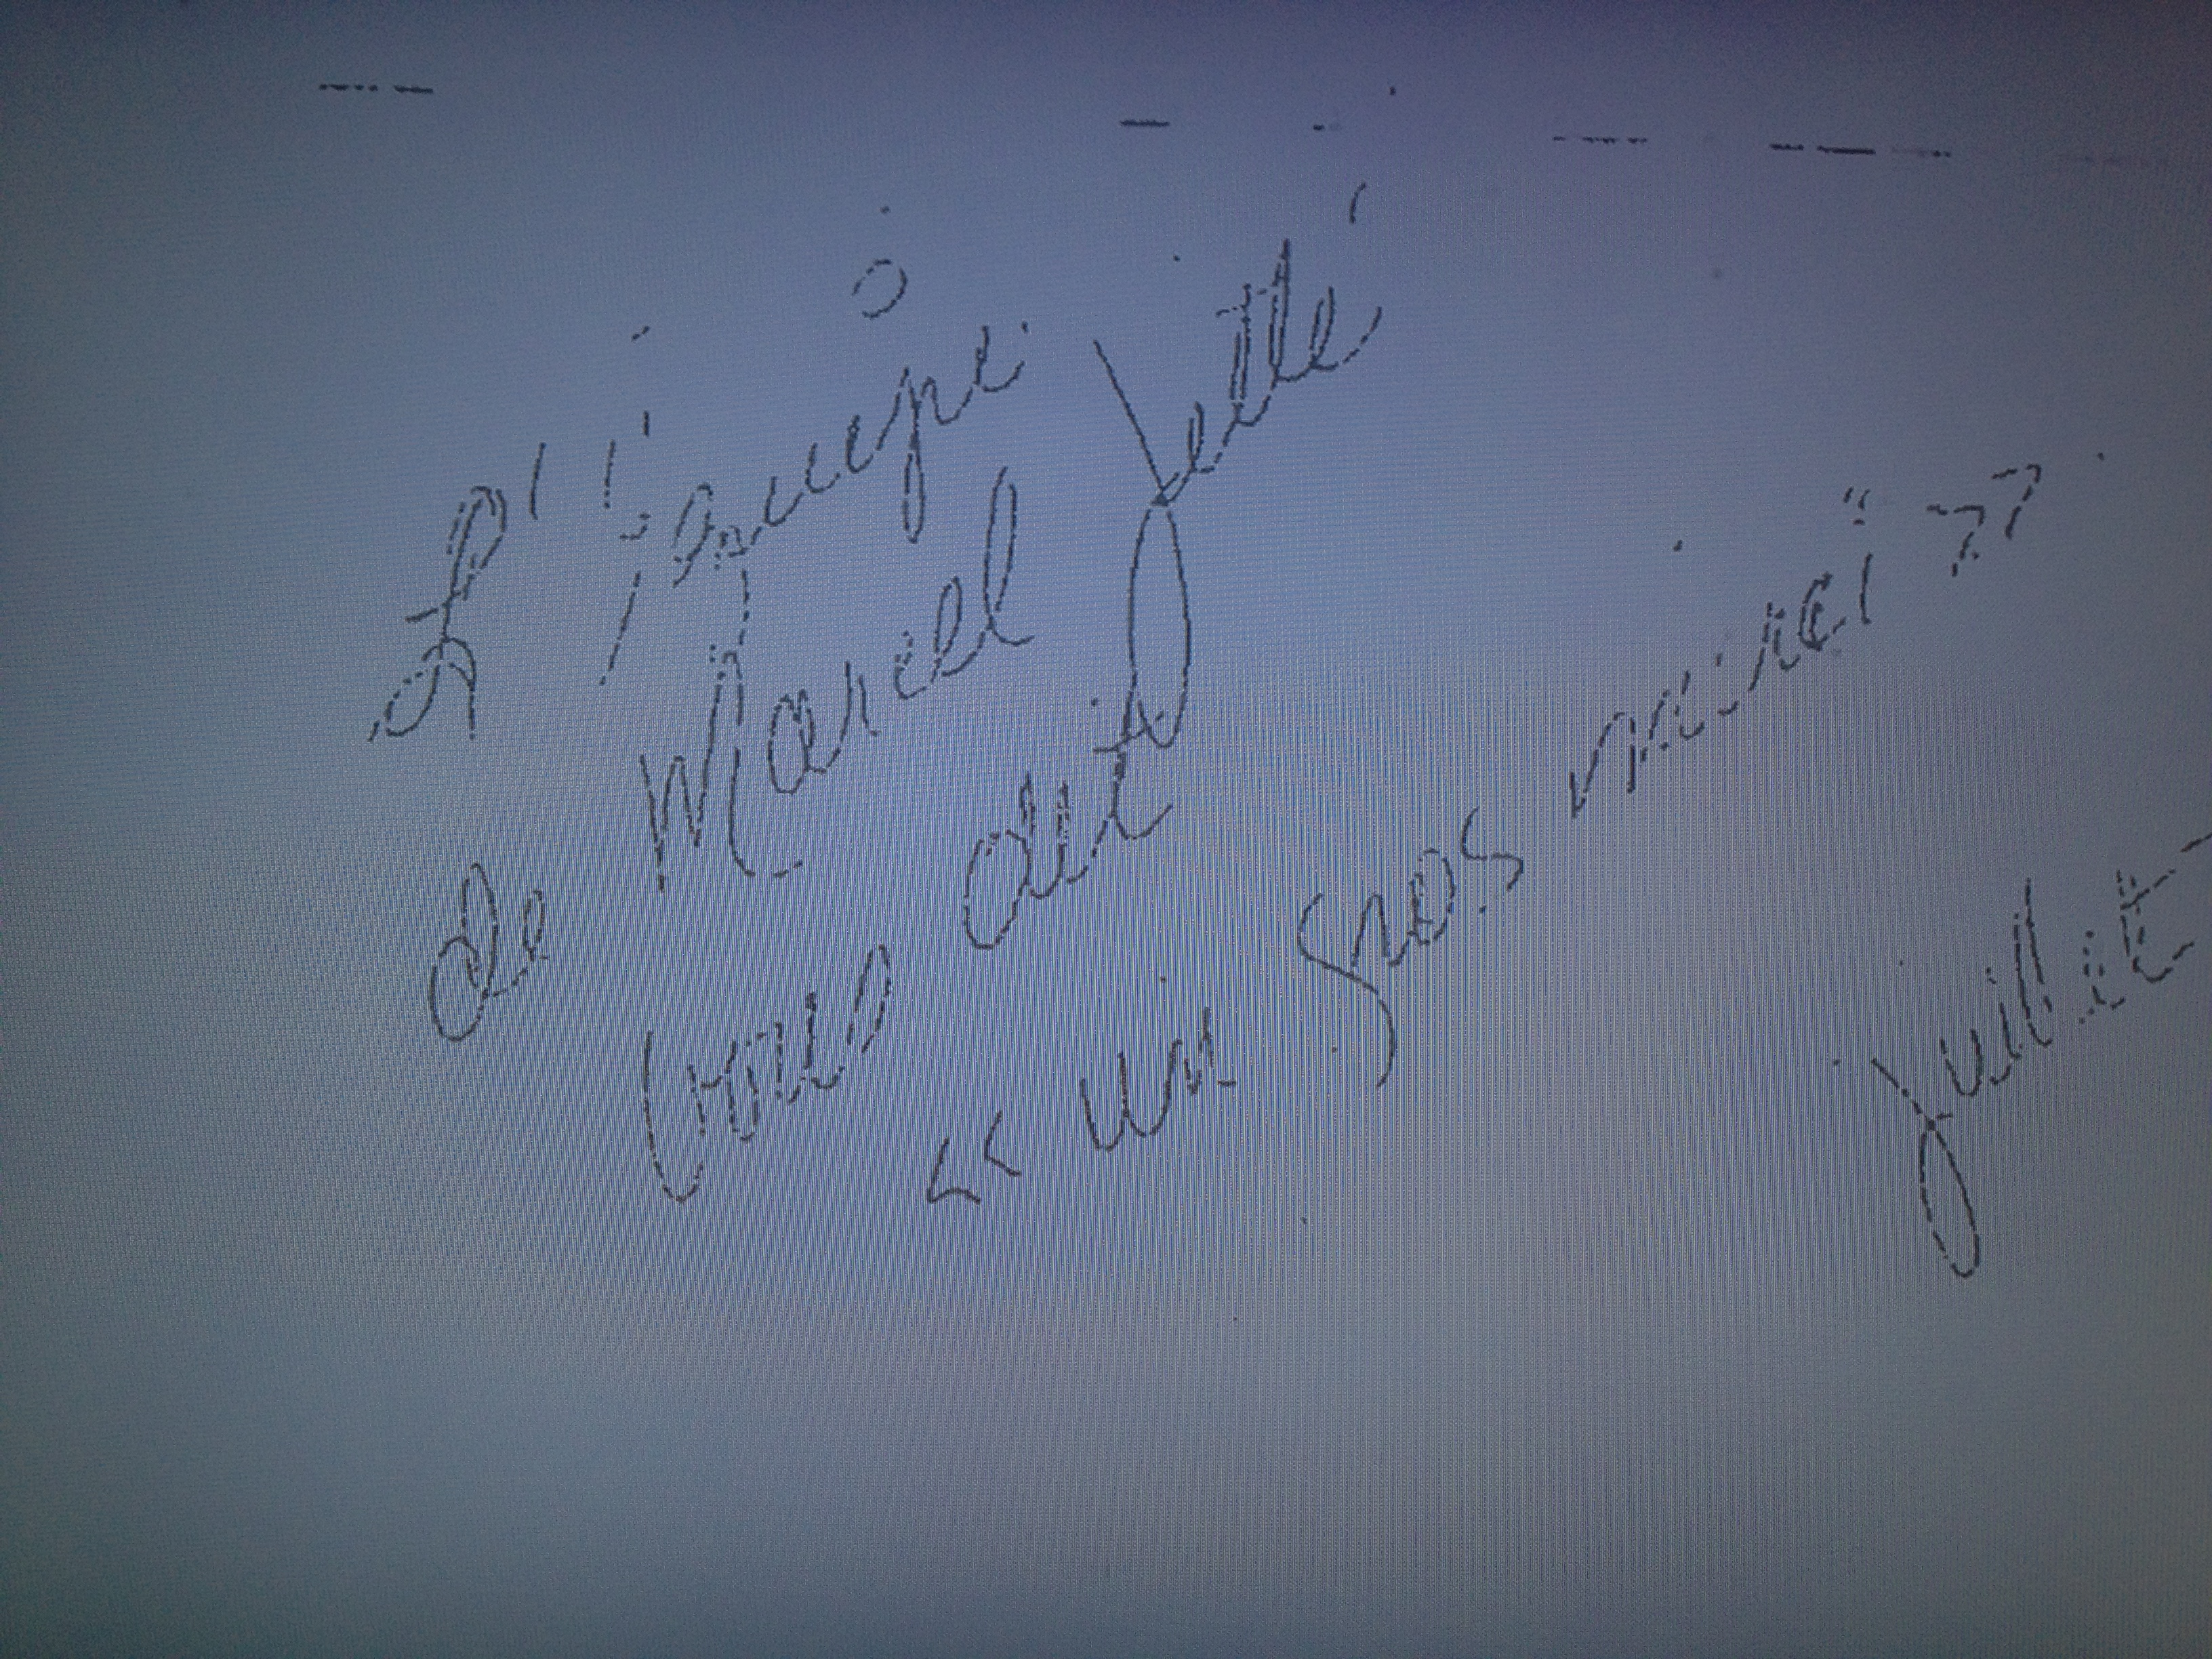 L'équipe
de Marcel Jetté
vous dit
« un gros merci »
Juliette